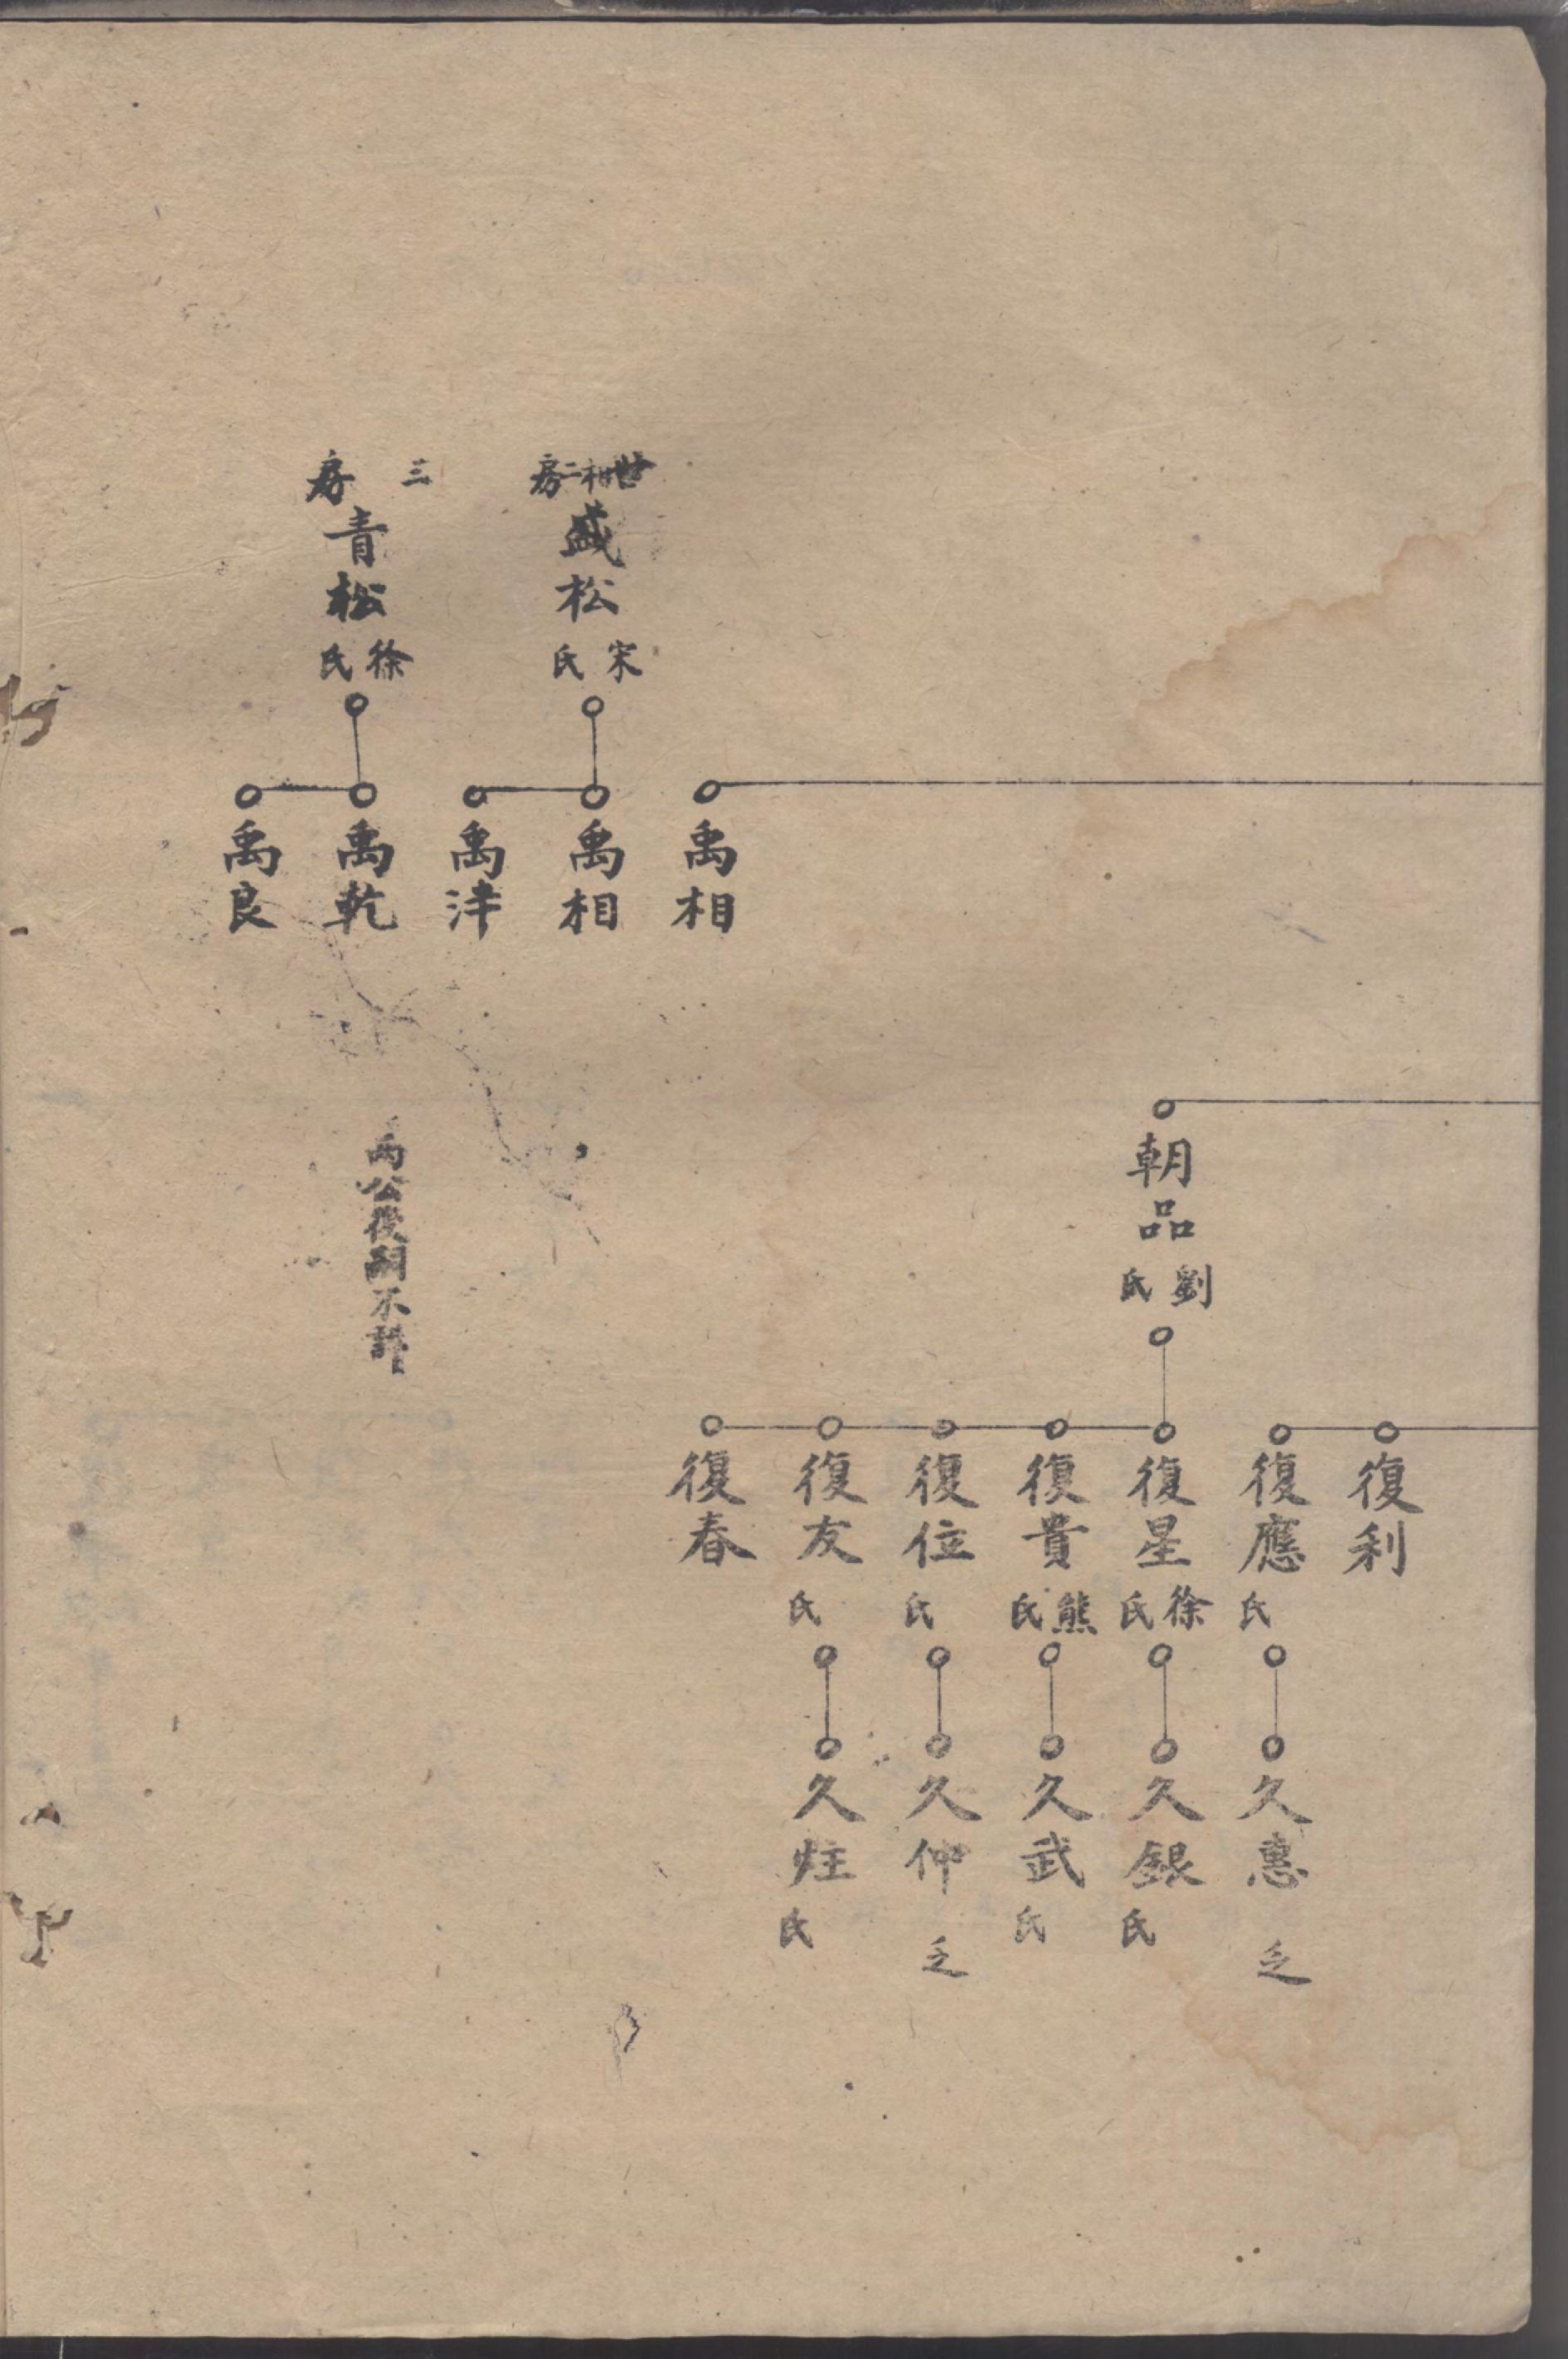 禹相
世相二房
盛松
宋氏
禹相
禹津
三房
青松
徐氏
禹乾
禹良
朝品
劉氏
復利
復應
氏
久惠
乏
復星
徐氏
久銀
氏
復貴
熊氏
久武
氏
復位
氏
久仲
乏
復友
氏
久炷
氏
復春
兩公後嗣不詳